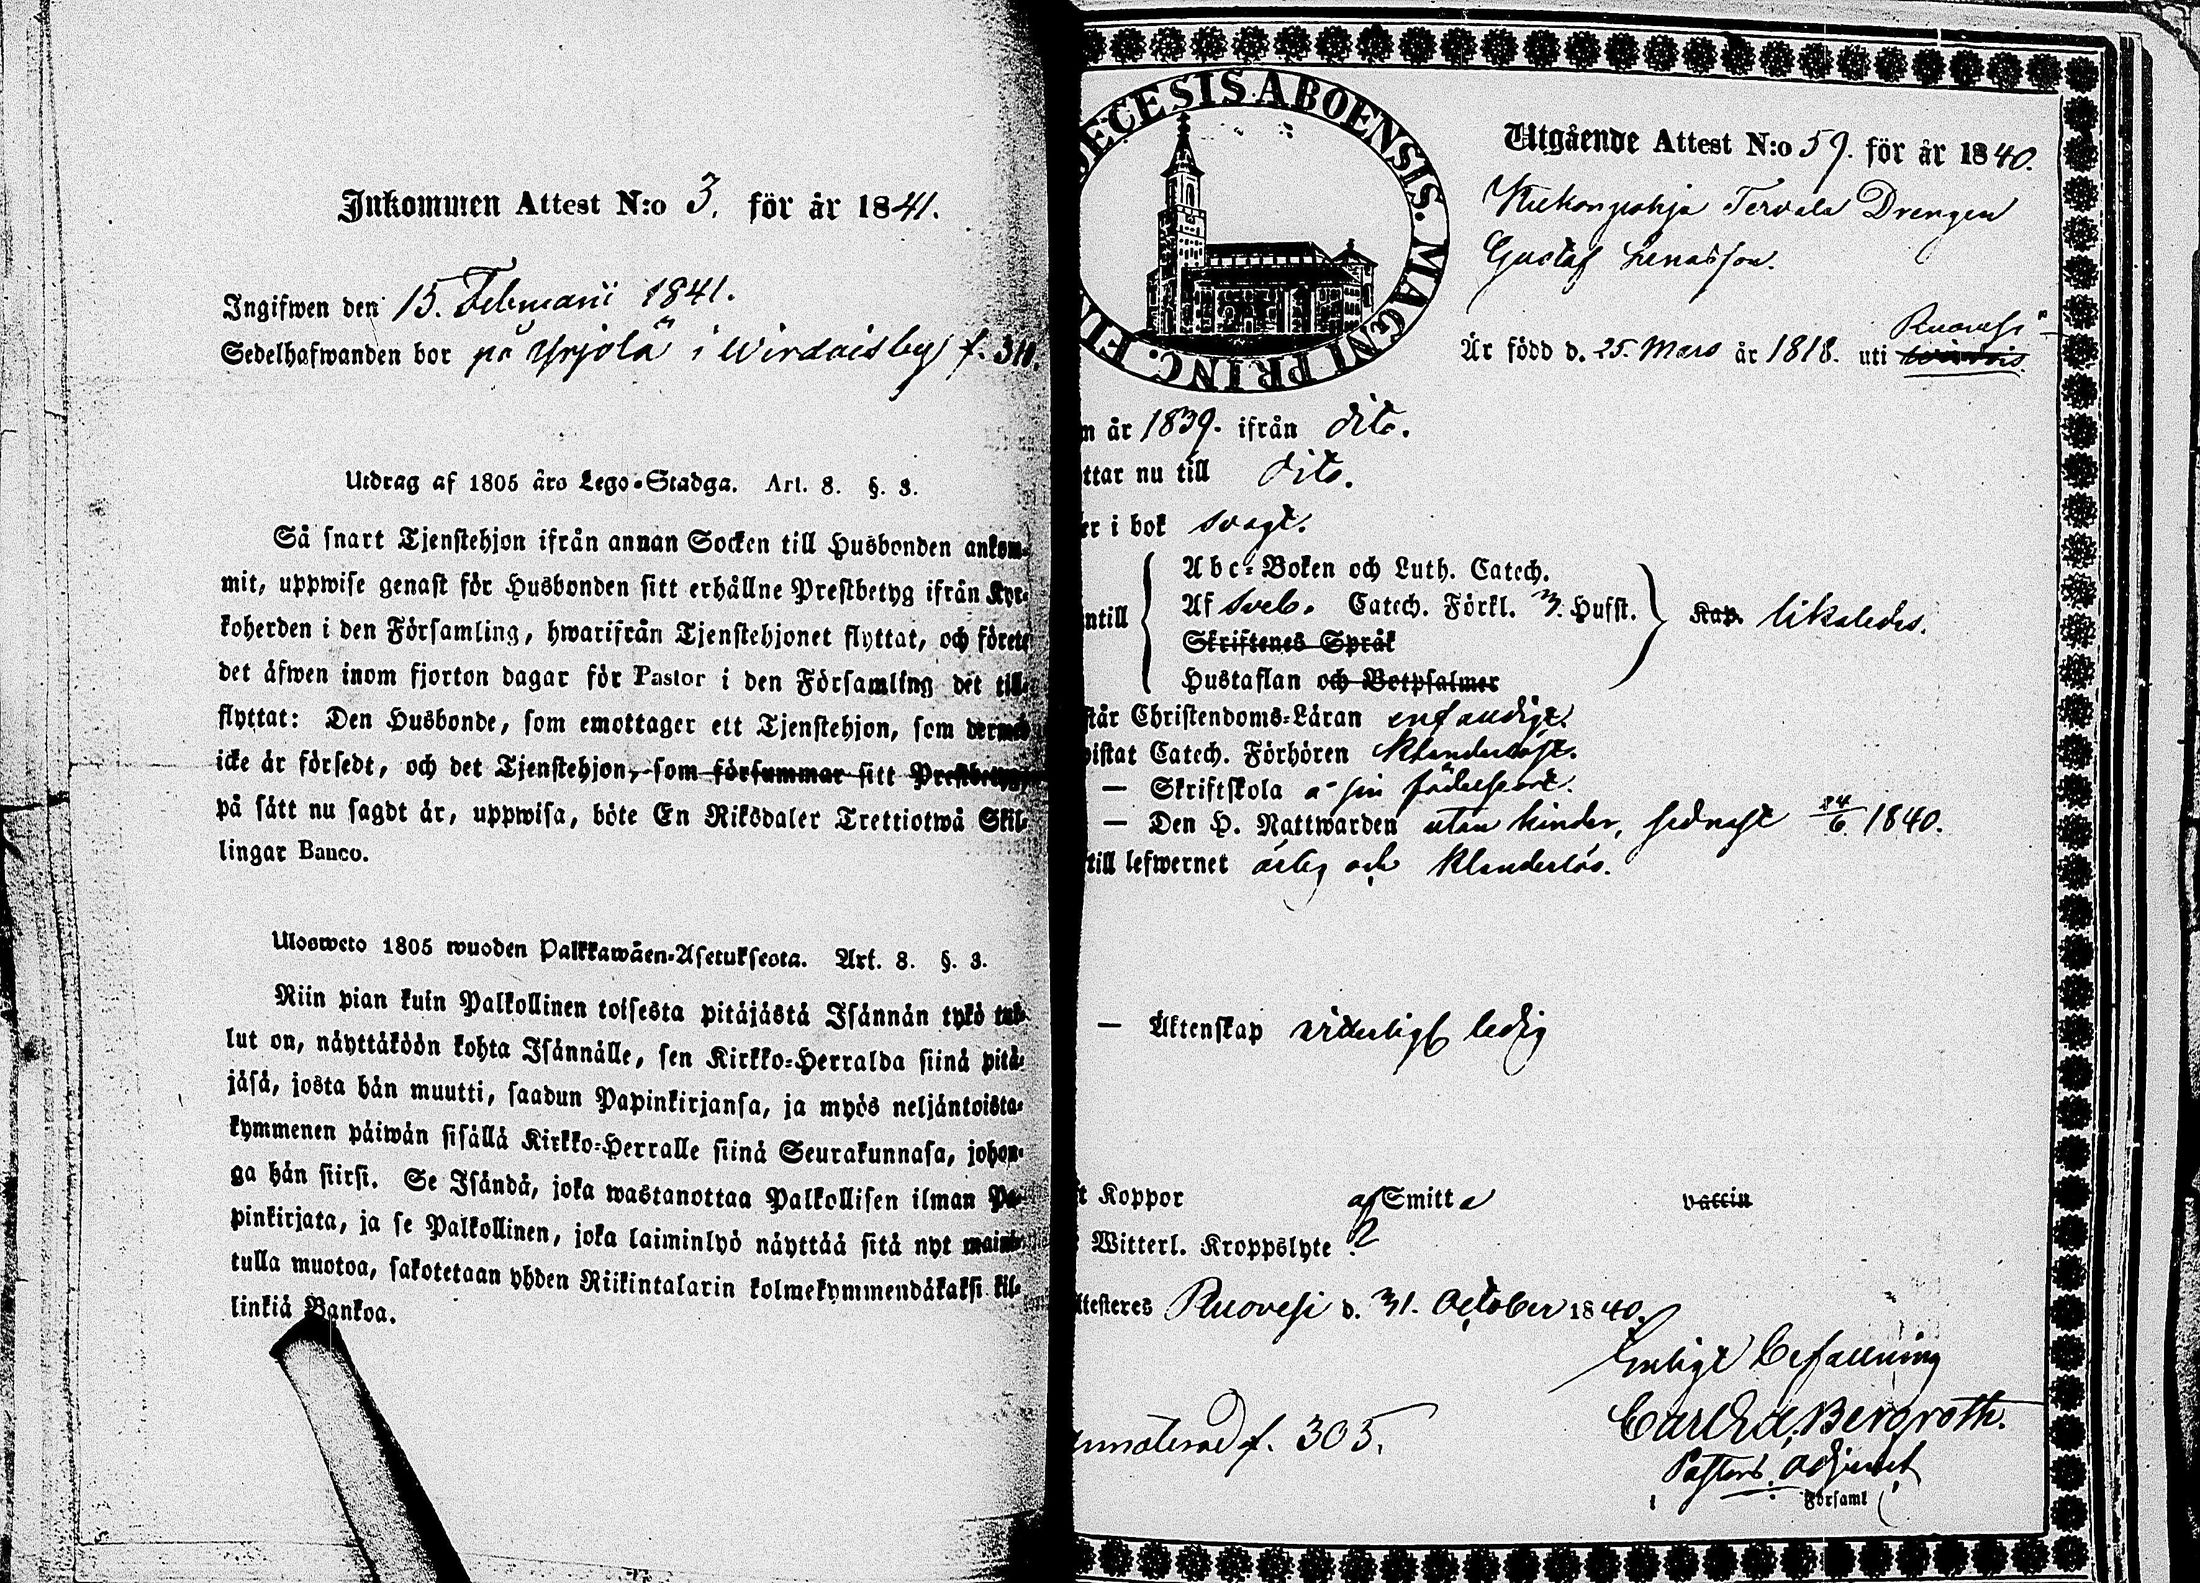 Inkommen Attest N:o 3. för år 1841.
Ingifwen den 15. Februarii 1841.
Sedelhafwanden bor på Yrjölä i Wirdoisby f. 311.
Utdrag af 1805 års Lego-Stadga. Art. 8. §. 3.
Så snart Tjenstehjon ifrån annan Socken till Husbonden ankom-
mit, uppwise genast för Husbonden sitt erhållne Prestbetyg ifrån Kyr-
koherden i den Församling, hwarifrån Tjenstehjonet flyttat, och förete
det äfwen inom fjorton dagar för Pastor i den Församling det till-
flyttat: Den Husbonde, som emottager ett Tjenstehjon, som dermed
icke är försedt, och det Tjenstehjon, som försummar sitt Prestbetyg,
på sätt nu sagdt är, uppwisa, böte En Riksdaler Trettiotwå Skil-
lingar Banco.
Ulosweto 1805 wuoden Palkkawäen-Asetuksesta. Art. 8. §. 3.
Niin pian kuin Palkollinen toisesta pitäjästä Isännän tykö tul-
lut on, näyttäköön kohta Isännälle, sen Kirkko-Herralda siinä pitä-
jäsä, josta hän muutti, saadun Papinkirjansa, ja myös neljäntoista-
kymmenen päiwän sisällä Kirkko-Herralle siinä Seurakunnasa, johon-
ga hän siirsi. Se Isändä, joka wastanottaa Palkollisen ilman Pa-
pinkirjata, ja se Palkollinen, joka laiminlyö näyttää sitä nyt maini-
tulla muotoa, sakotetaan yhden Riikintalarin kolmekymmendäkaksi kil-
linkiä Bankoa.
ECESIS ABOENSIS. MAGNI PRINC. FIN
Utgående Attest N:o 59. för år 1840.
Tervala Drengen
Gustaf
Är född d. 25. Mars år 1818. uti Ruovesi
n år 1839. ifrån dito.
ttar nu till dito.
er i bok svagt.
Abc-Boken och Luth. Catech.
Af Sveb. Catech. Förkl. Hufst.
ntill Kap. likaledes.
Skriftenes Språk
Hustaflan och Botpsalmer
står Christendoms-Läran enfaldigt.
istat Catech. Förhören klanderlöst.
— Skriftskola å sin födelseort.
— Den H. Nattwarden utan hinder, sednast 24/6 1840.
till lefwernet ärlig och klanderlös.
— Äktenskap ledig
t Koppor af Smitta vaccin
Witterl. Kroppslyte ?
ttesteres Ruovesi d. 31. October 1840.
Enligt Befallning
Carl Ed. Bergroth.
Pastors Adjunct
Församl
nnoterad f. 303.